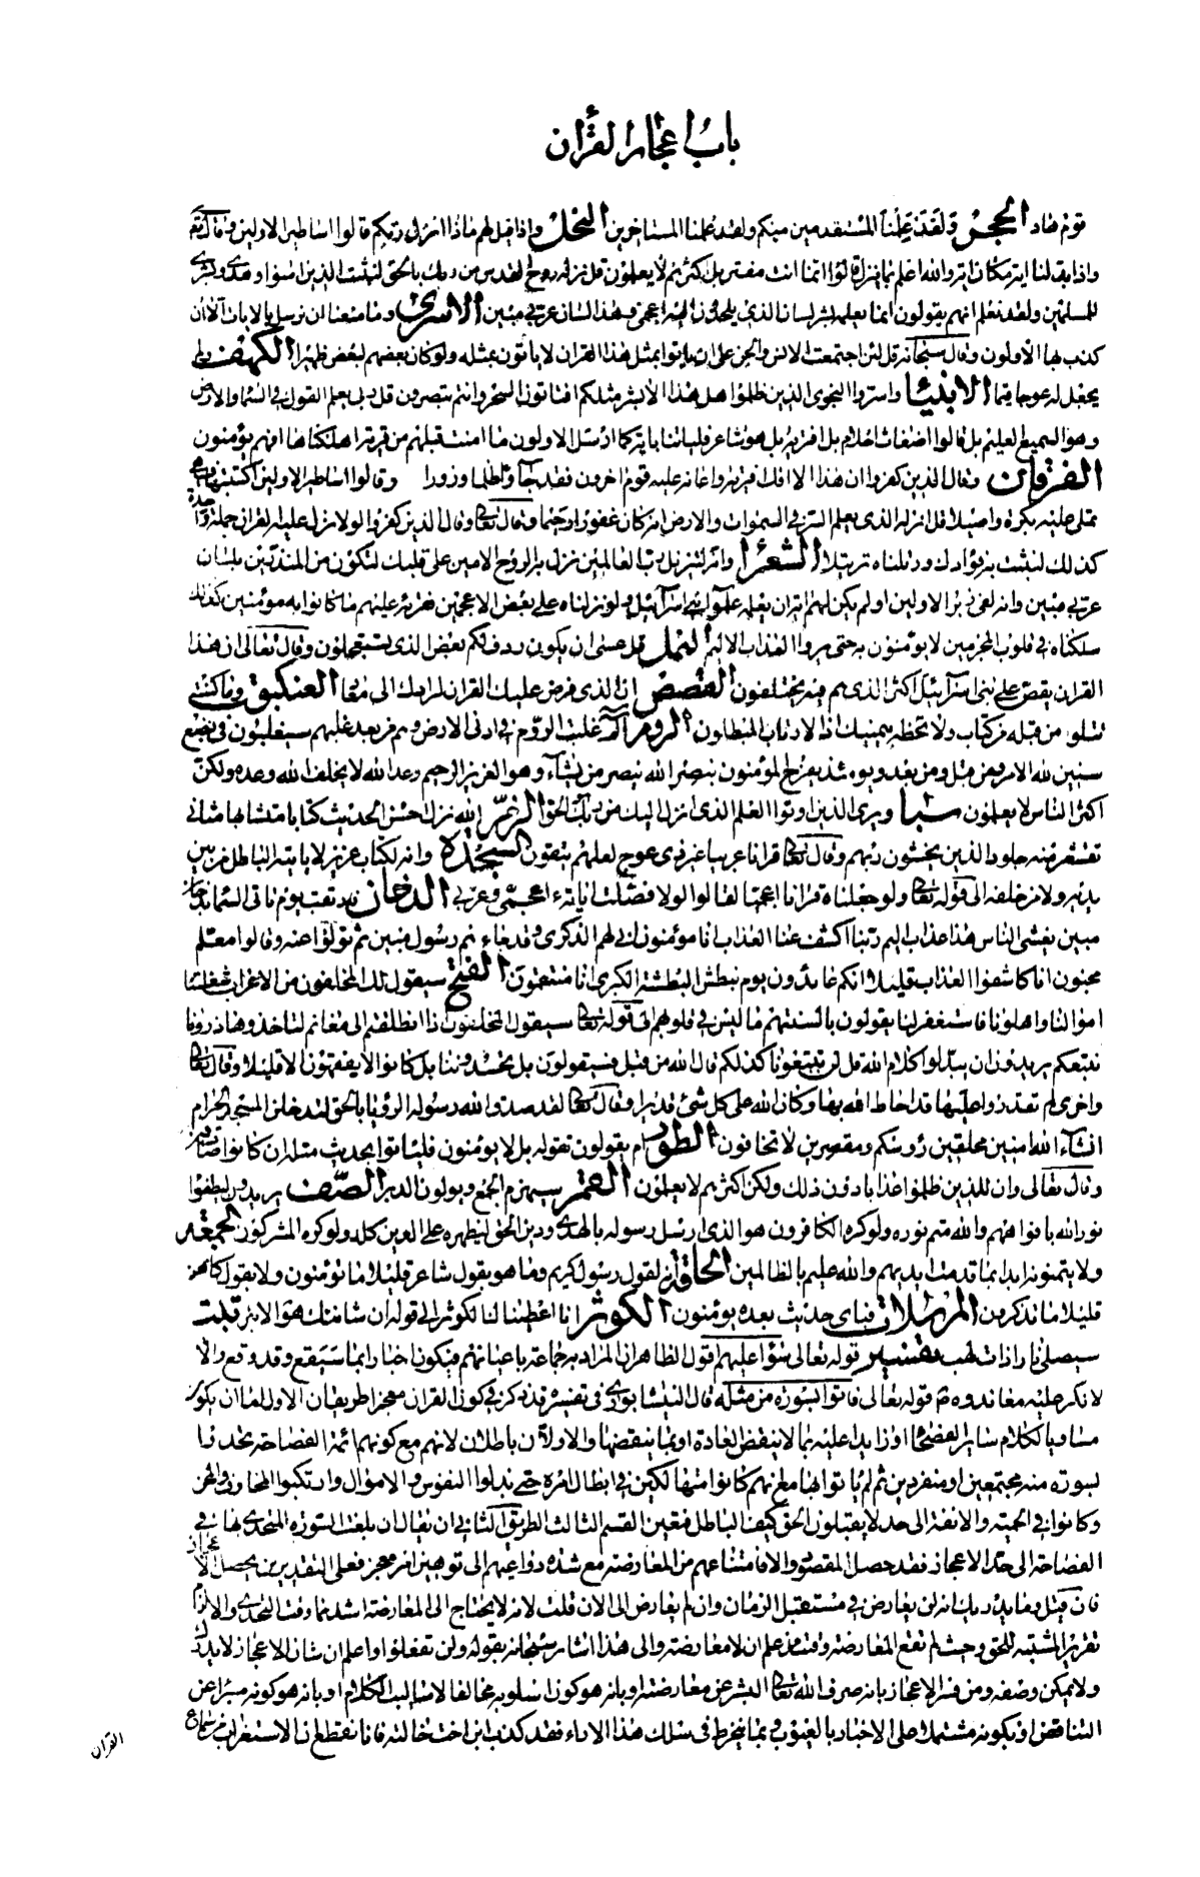 باب اعجاز القرآن
قوم هاد الحجر ولقد علمنا المستقدمين منكم ولقد علمنا المستأخرين النحل واذا قيل لهم ماذا انزل ربكم قالوا اساطير الاولين وقال تعالى
واذا بدلنا اية مكان اية والله اعلم بما ينزل قالوا انما انت مفتر بل اكثرهم لا يعلمون قل نزله روح القدس من ربك بالحق ليثبت الذين امنوا وهدى وبشرى
للمسلمين ولقد نعلم انهم يقولون انما يعلمه بشر لسان الذي يلحدون اليه اعجمي وهذا لسان عربي مبين الاسرى وما منعنا ان نرسل بالايات الا ان
كذب بها الاولون وقال سبحانه قل لئن اجتمعت الانس والجن على ان ياتوا بمثل هذا القران لا ياتون بمثله ولو كان بعضهم لبعض ظهيرا الكهف ولم
يجعل له عوجا قيما الانبياء واسروا النجوى الذين ظلموا هل هذا الا بشر مثلكم افتاتون السحر وانتم تبصرون قل ربي يعلم القول في السماء والارض
وهو السميع العليم بل قالوا اضغاث احلام بل افتريه بل هو شاعر فلياتنا باية كما ارسل الاولون ما امنت قبلهم من قرية اهلكناها افهم يؤمنون
الفرقان وقال الذين كفروا ان هذا الا افك افتريه واعانه عليه قوم اخرون فقد جآؤا ظلما وزورا وقالوا اساطير الاولين اكتتبها فهي
تملى عليه بكرة واصيلا قل انزله الذي يعلم السر في السموات والارض انه كان غفورا رحيما وقال تعالى وقال الذين كفروا لولا نزل عليه القران جملة واحدة
كذلك لنثبت به فؤادك ورتلناه ترتيلا الشعرا وانه لتنزيل رب العالمين نزل به الروح الامين على قلبك لتكون من المنذرين بلسان
عربي مبين وانه لفي زبر الاولين اولم يكن لهم اية ان يعلمه علموا بني اسرآئيل ولو نزلناه على بعض الاعجمين فقرأه عليهم ما كانوا به مؤمنين كذلك
سلكناه في قلوب المجرمين لا يؤمنون به حتى يروا العذاب الاليم النمل قل عسى ان يكون ردف لكم بعض الذي تستعجلون وقال تعالى ان هذا
القران يقص على بني اسرآئيل اكثر الذي هم فيه يختلفون القصص ان الذي فرض عليك القران لرادك الى معاد العنكبوت وما كنت
تتلوا من قبله من كتاب ولا تخطه بيمينك اذا لارتاب المبطلون الروم الم غلبت الروم في ادنى الارض وهم من بعد غلبهم سيغلبون في بضع
سنين لله الامر من قبل ومن بعد ويومئذ يفرح المؤمنون بنصر الله ينصر من يشآء وهو العزيز الرحيم وعد الله لا يخلف الله وعده ولكن
اكثر الناس لا يعلمون سبا ويرى الذين اوتوا العلم الذي انزل اليك من ربك الحق الزمر الله نزل احسن الحديث كتابا متشابها مثاني
تقشعر منه جلود الذين يخشون ربهم وقال تعالى قرانا عربيا غير ذي عوج لعلهم يتقون السجدة وانه لكتاب عزيز لا ياتيه الباطل من بين
يديه ولا من خلفه الى قوله تعالى ولو جعلناه قرانا اعجميا لقالوا لولا فصلت اياته ءاعجمي وعربي الدخان فارتقب يوم تاتي السماء بدخان
مبين يغشى الناس هذا عذاب اليم ربنا اكشف عنا العذاب انا مؤمنون انى لهم الذكرى وقد جاءهم رسول مبين ثم تولوا عنه وقالوا معلم
مجنون انا كاشفوا العذاب قليلا انكم عائدون يوم نبطش البطشة الكبرى انا منتقمون الفتح سيقول لك المخلفون من الاعراب شغلتنا
اموالنا واهلونا فاستغفر لنا يقولون بالسنتهم ما ليس في قلوبهم الى قوله تعالى سيقول المخلفون اذا انطلقتم الى مغانم لتاخذوها ذرونا
نتبعكم يريدون ان يبدلوا كلام الله قل لن تتبعونا كذلكم قال الله من قبل فسيقولون بل تحسدوننا بل كانوا لا يفقهون الا قليلا وقال تعالى
واخرى لم تقدروا عليها قد احاط الله بها وكان الله على كل شئ قديرا وقال تعالى لقد صدق الله رسوله الرؤيا بالحق لتدخلن المسجد الحرام
انشآء الله امنين محلقين رؤسكم ومقصرين لا تخافون الطور ام يقولون تقوله بل لا يؤمنون فلياتوا بحديث مثله ان كانوا صادقين
وقال تعالى وان للذين ظلموا عذابا دون ذلك ولكن اكثرهم لا يعلمون القمر سيهزم الجمع ويولون الدبر الصف يريدون ليطفؤا
نور الله بافواههم والله متم نوره ولو كره الكافرون هو الذي ارسل رسوله بالهدى ودين الحق ليظهره على الدين كله ولو كره المشركون الجمعة
ولا يتمنونه ابدا بما قدمت ايديهم والله عليم بالظالمين الحاقة انه لقول رسول كريم وما هو بقول شاعر قليلا ما تؤمنون ولا بقول كاهن
قليلا ما تذكرون المرسلات فباي حديث بعده يؤمنون الكوثر انا اعطيناك الكوثر الى قوله ان شانئك هو الابتر تبت
سيصلى نارا ذات لهب تفسير قوله تعالى سوآء عليهم اقول الظاهر ان المراد به جماعة باعيانهم فيكون اخبارا بما سيقع وقد وقع والا
لانكر عليه معاندوه قوله تعالى فاتوا بسورة من مثله قال النيشابوري في تفسيره قد ذكر في كون القران معجزا طريقان الاول اما ان يكون
مساويا لكلام ساير الفصحآء او زايدا عليه بما لا ينقض العادة او بما ينقضها والاولان باطلان لانهم مع كونهم ائمة الفصاحة تحدوا
بسورة منه مجتمعين او منفردين ثم لم ياتوا بها مع انهم كانوا متهالكين في ابطال امره حتى بذلوا النفوس والاموال وارتكبوا المخاوف والمحن
وكانوا في الحمية والانفة الى حد لا يقبلون الحق كيف الباطل فتعين القسم الثالث الطريق الثاني ان يقال ان بلغت السورة المتحدى بها في
الفصاحة الى حد الاعجاز فقد حصل المقصود والا فامتناعهم من المعارضة مع شدة دواعيهم الى توهين امره معجز فعلى التقديرين يحصل الاعجاز
فان قيل وما يدريك انه لن يعارض في مستقبل الزمان وان لم يعارض الى الان قلت لانه لا يحتاج الى المعارضة اشد مما وقت التحدي والا لزم
تقرير المشتبه للحق وحيث لم تقع المعارضة وقتئذ علم ان لا معارضة والى هذا اشار سبحانه بقوله ولن تفعلوا واعلم ان شان الاعجاز لا يدرك
ولا يمكن وصفه ومن فسر الاعجاز بانه صرف الله تعالى البشر عن معارضته او بانه هو كون اسلوبه مخالفا لاساليب الكلام او بانه هو كونه مبرءا عن
التناقض او بكونه مشتملا على الاخبار بالغيوب وبما ينخرط في سلك هذا الاراء فقد كذب ابن اخت خالته فانا نقطع ان الاستغراب من سماع
القران